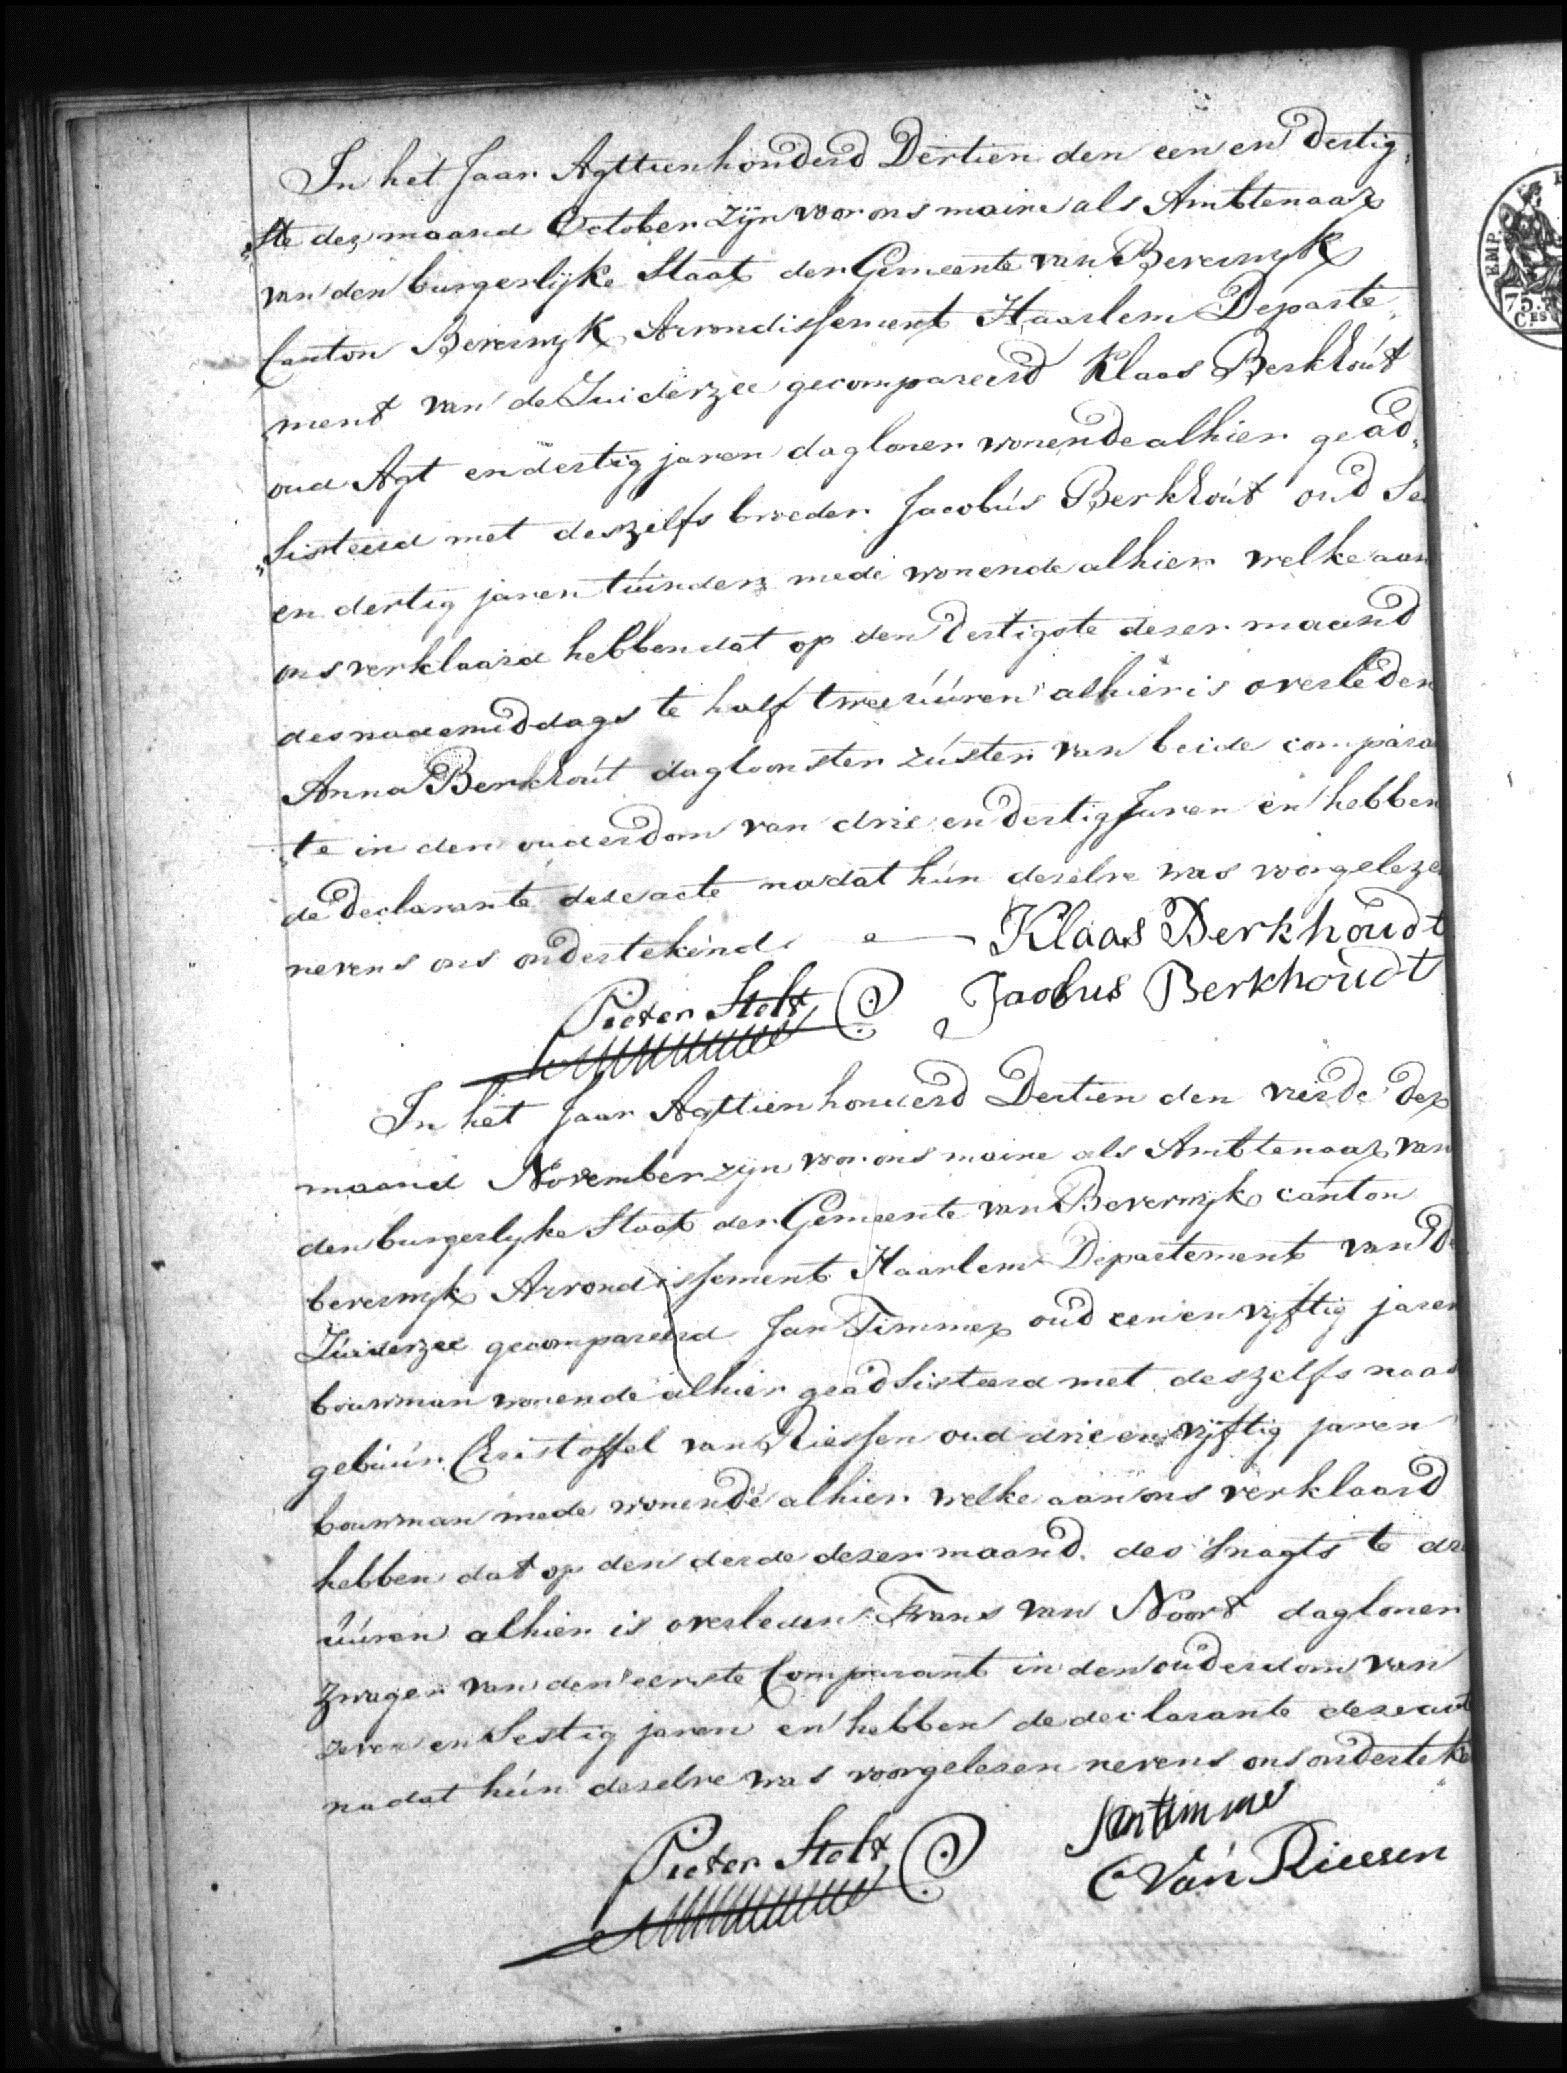 In het Jaar Agttienhonderd Dertien den een en dertig„
„ste der maand October zijn voor ons maire als Ambtenaar
van den burgerlijke Staat der Gemeente van Beverwyk
Canton Beverwyk Arrondissement Haarlem Departe„
„ment van de Zuiderzee gecompareerd Klaas Berkhout
oud Agt en dertig jaren dagloner wonende alhier gead„
„sisteerd met deszelfs broeder Jacobus Berkhout oud
en dertig jaren tuinder mede wonende alhier welke aan
ons verklaard hebben dat op den dertigste deser maand
des nademiddags te half twee uuren alhier is overleden
Anna Berkhout dagloonster zuster van beide compara
„te in den ouderdom van drie en dertig Jaren en hebben
de declarante dese acte nadat hun deselve was voorgeleze
nevens ons ondertekend
Klaas Berkhoudt
Pieter Stolt Jaobus Berkhoudt
In het Jaar Agttienhonderd Dertien den vierde der
maand November zijn voor ons maire als Ambtenaar van
den burgerlyke Staat der Gemeente van Beverwyk canton
beverwyk Arrondissement Haarlem Departement van de
Zuiderzee gecompareerd Jan Timmer oud een en vyftig jaren
bouwman wonende alhier geadsisteerd met deszelfs naas
gebuur Christoffel van Riessen oud drie en vijftig jaren
bouwman mede wonende alhier welke aan ons verklaard
hebben dat op den derde deser maand des snagts te
uuren alhier is overleden Frans van Noort dagloner
zwager van den eerste Comparant in den ouderdom van
zeven en Sestig jaren en hebben de declarante dese act
nadat hun deselve was voorgelesen nevens ons onderteke
Jan timmer
Pieter Stolt C Van Riessen
EMP.
75.
CES